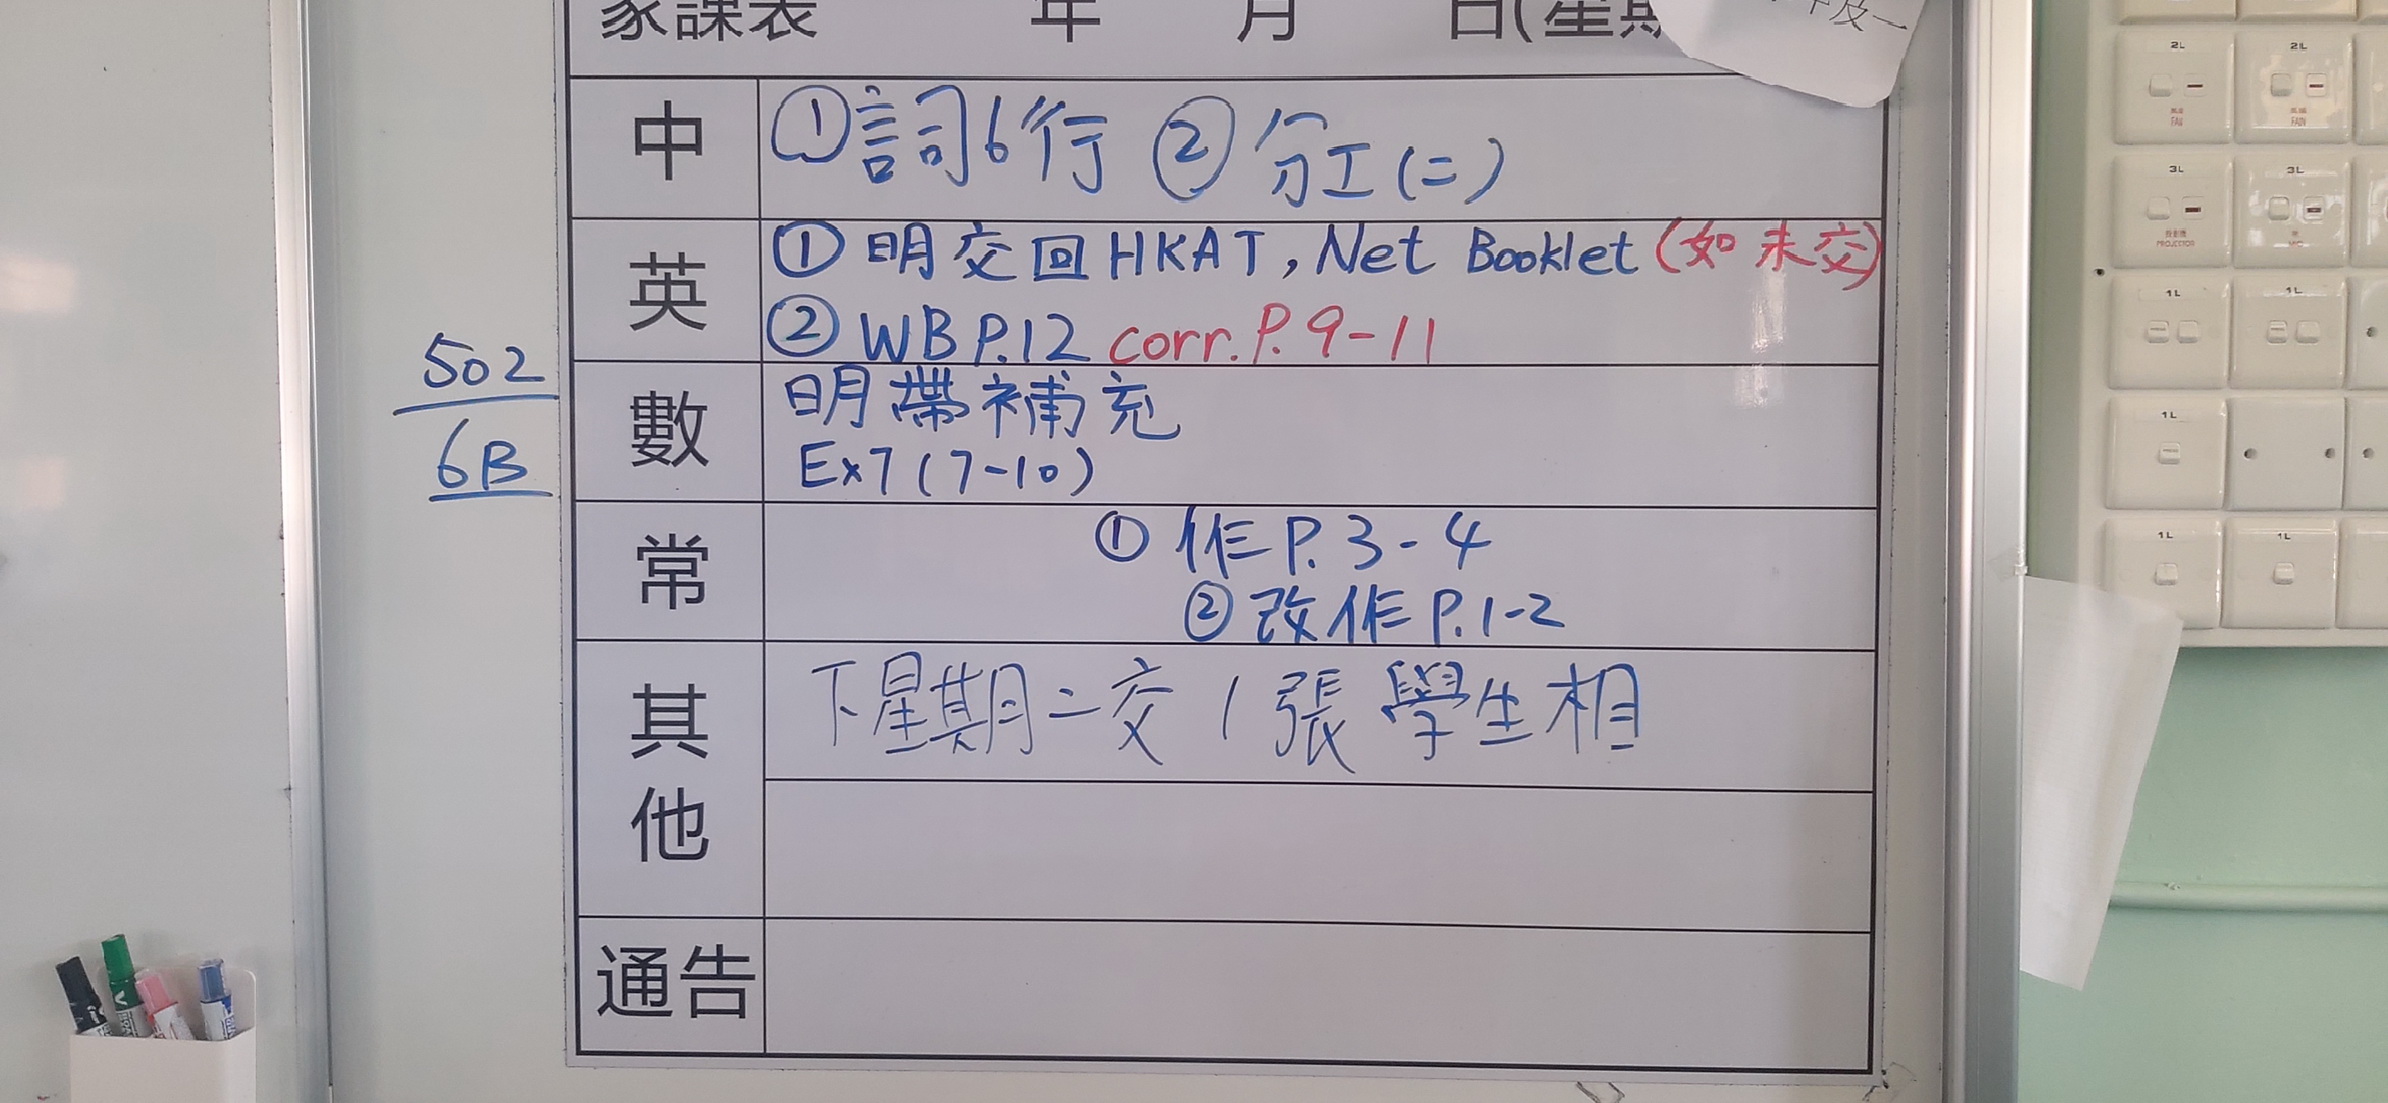 家課表 年 月 日(星期
中 ①詞6行 ②分工(二)
英 ①明交回HKAT, Net Booklet (如未交)
②WB P.12 corr. P. 9-11
502
6B
數 明帶補充
Ex7 (7-10)
常 ①作P.3-4
②改作P.1-2
其他 下星期二交1張學生相
通告
2L 2L
FAN
3L 3L
PROJECTOR
1L 1L
1L
1L 1L